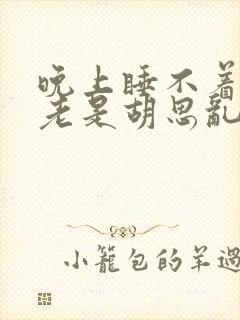 晚上睡不着
老是胡思亂
小籠包的羊過